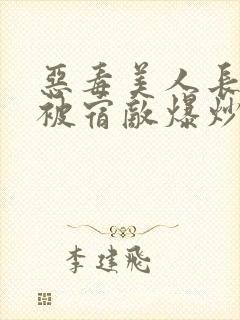 惡毒美人長
被宿敵爆炒
李建飛